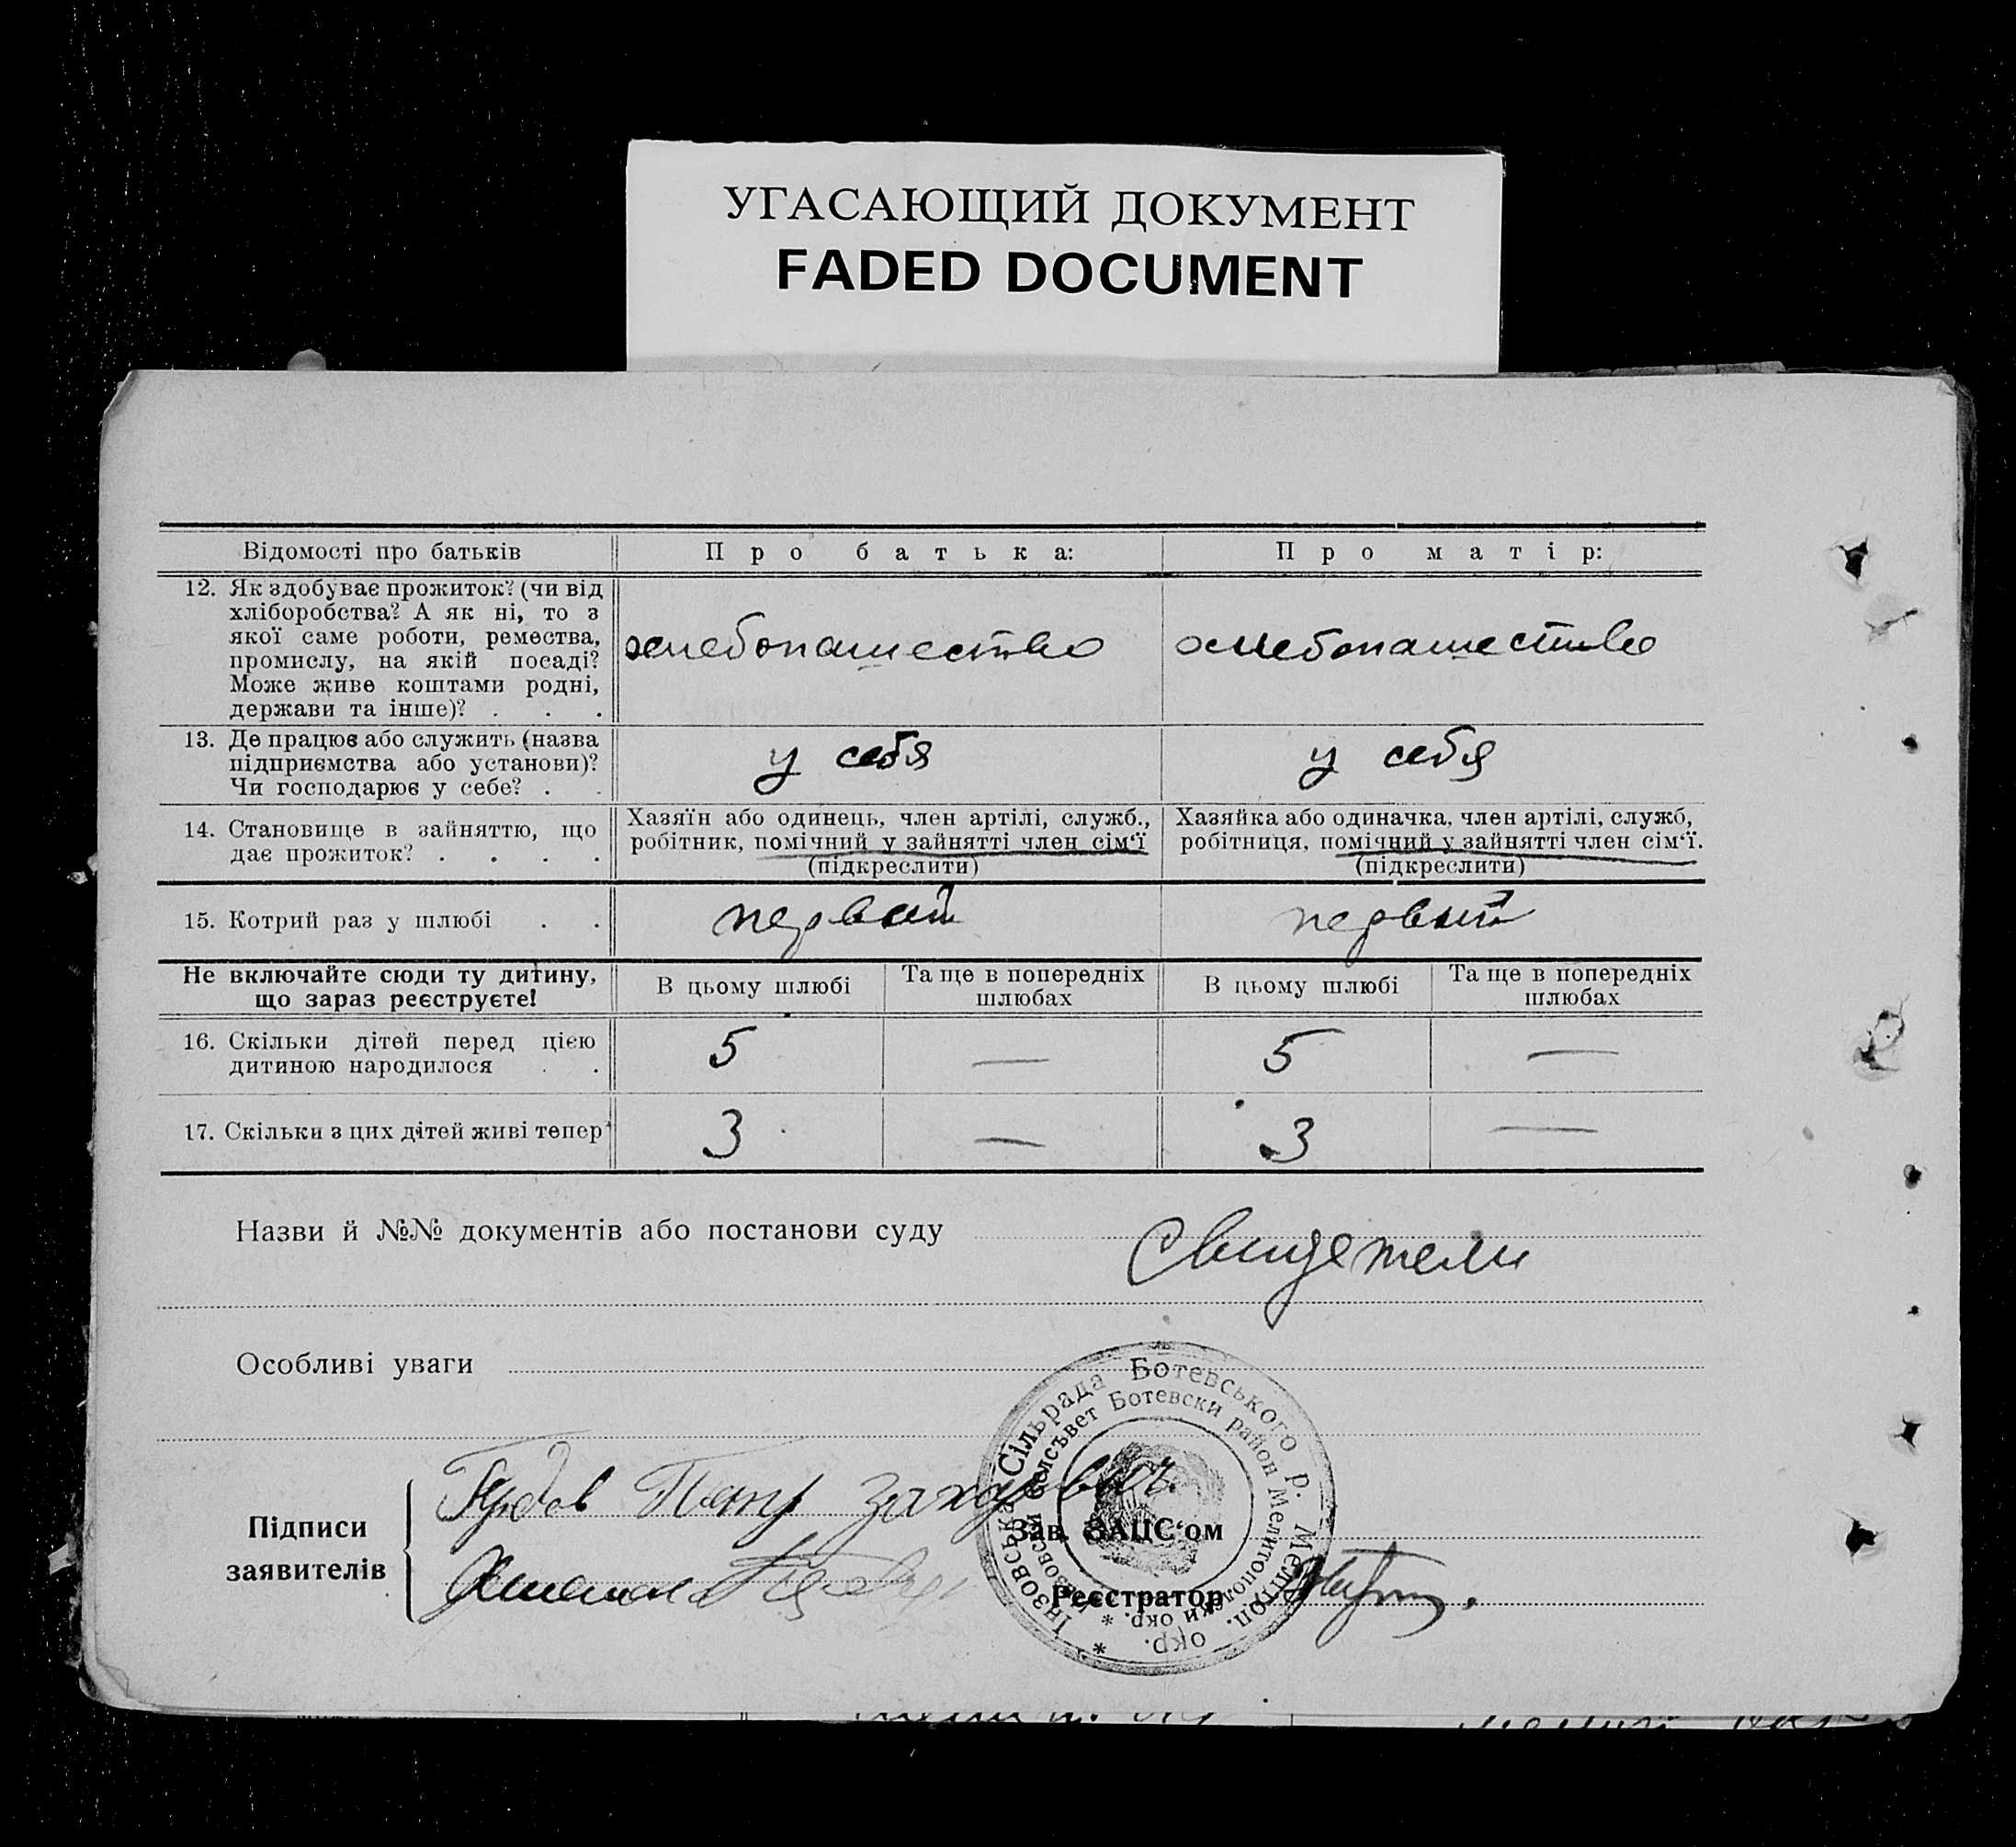 УГАСАЮЩИЙ ДОКУМЕНТ
FADED DOCUMENT
Відомості про батьків
Про батька:
Про матір:
12. Як здобуває прожиток? (чи від
хліборобства? А як ні, то з
якої саме роботи, ремества,
промислу, на якій посаді?
Може живе коштами родні,
держави та інше)? . . .
хлебопашество
хлебопашество
13. Де працює або служить (назва
підприємства або установи)?
Чи господарює у себе? . .
у себя
у себя
14. Становище в зайняттю, що
дає прожиток? . . . .
Хазяїн або одинець, член артілі, служб.,
робітник, помічний у зайнятті член сім'ї
(підкреслити)
Хазяйка або одиначка, член артілі, служб,
робітниця, помічний у зайнятті член сім'ї.
(підкреслити)
15. Котрий раз у шлюбі . .
первый
первый
Не включайте сюди ту дитину,
що зараз реєструєте!
В цьому шлюбі
Та ще в попередніх
шлюбах
В цьому шлюбі
Та ще в попередніх
шлюбах
16. Скільки дітей перед цією
дитиною народилося . .
5
—
5
—
17. Скільки з цих дітей живі тепер
3
—
3
—
Назви й №№ документів або постанови суду
Свидетели
Особливі уваги
Підписи
заявителів
Петр Захарович
Зав. ЗАЦС'ом
Реєстратор
Інзовська Сільрада Ботевського р. Мелітоп. окр. *
Инзовски селсъвет Ботевски район Мелитополски окр. *